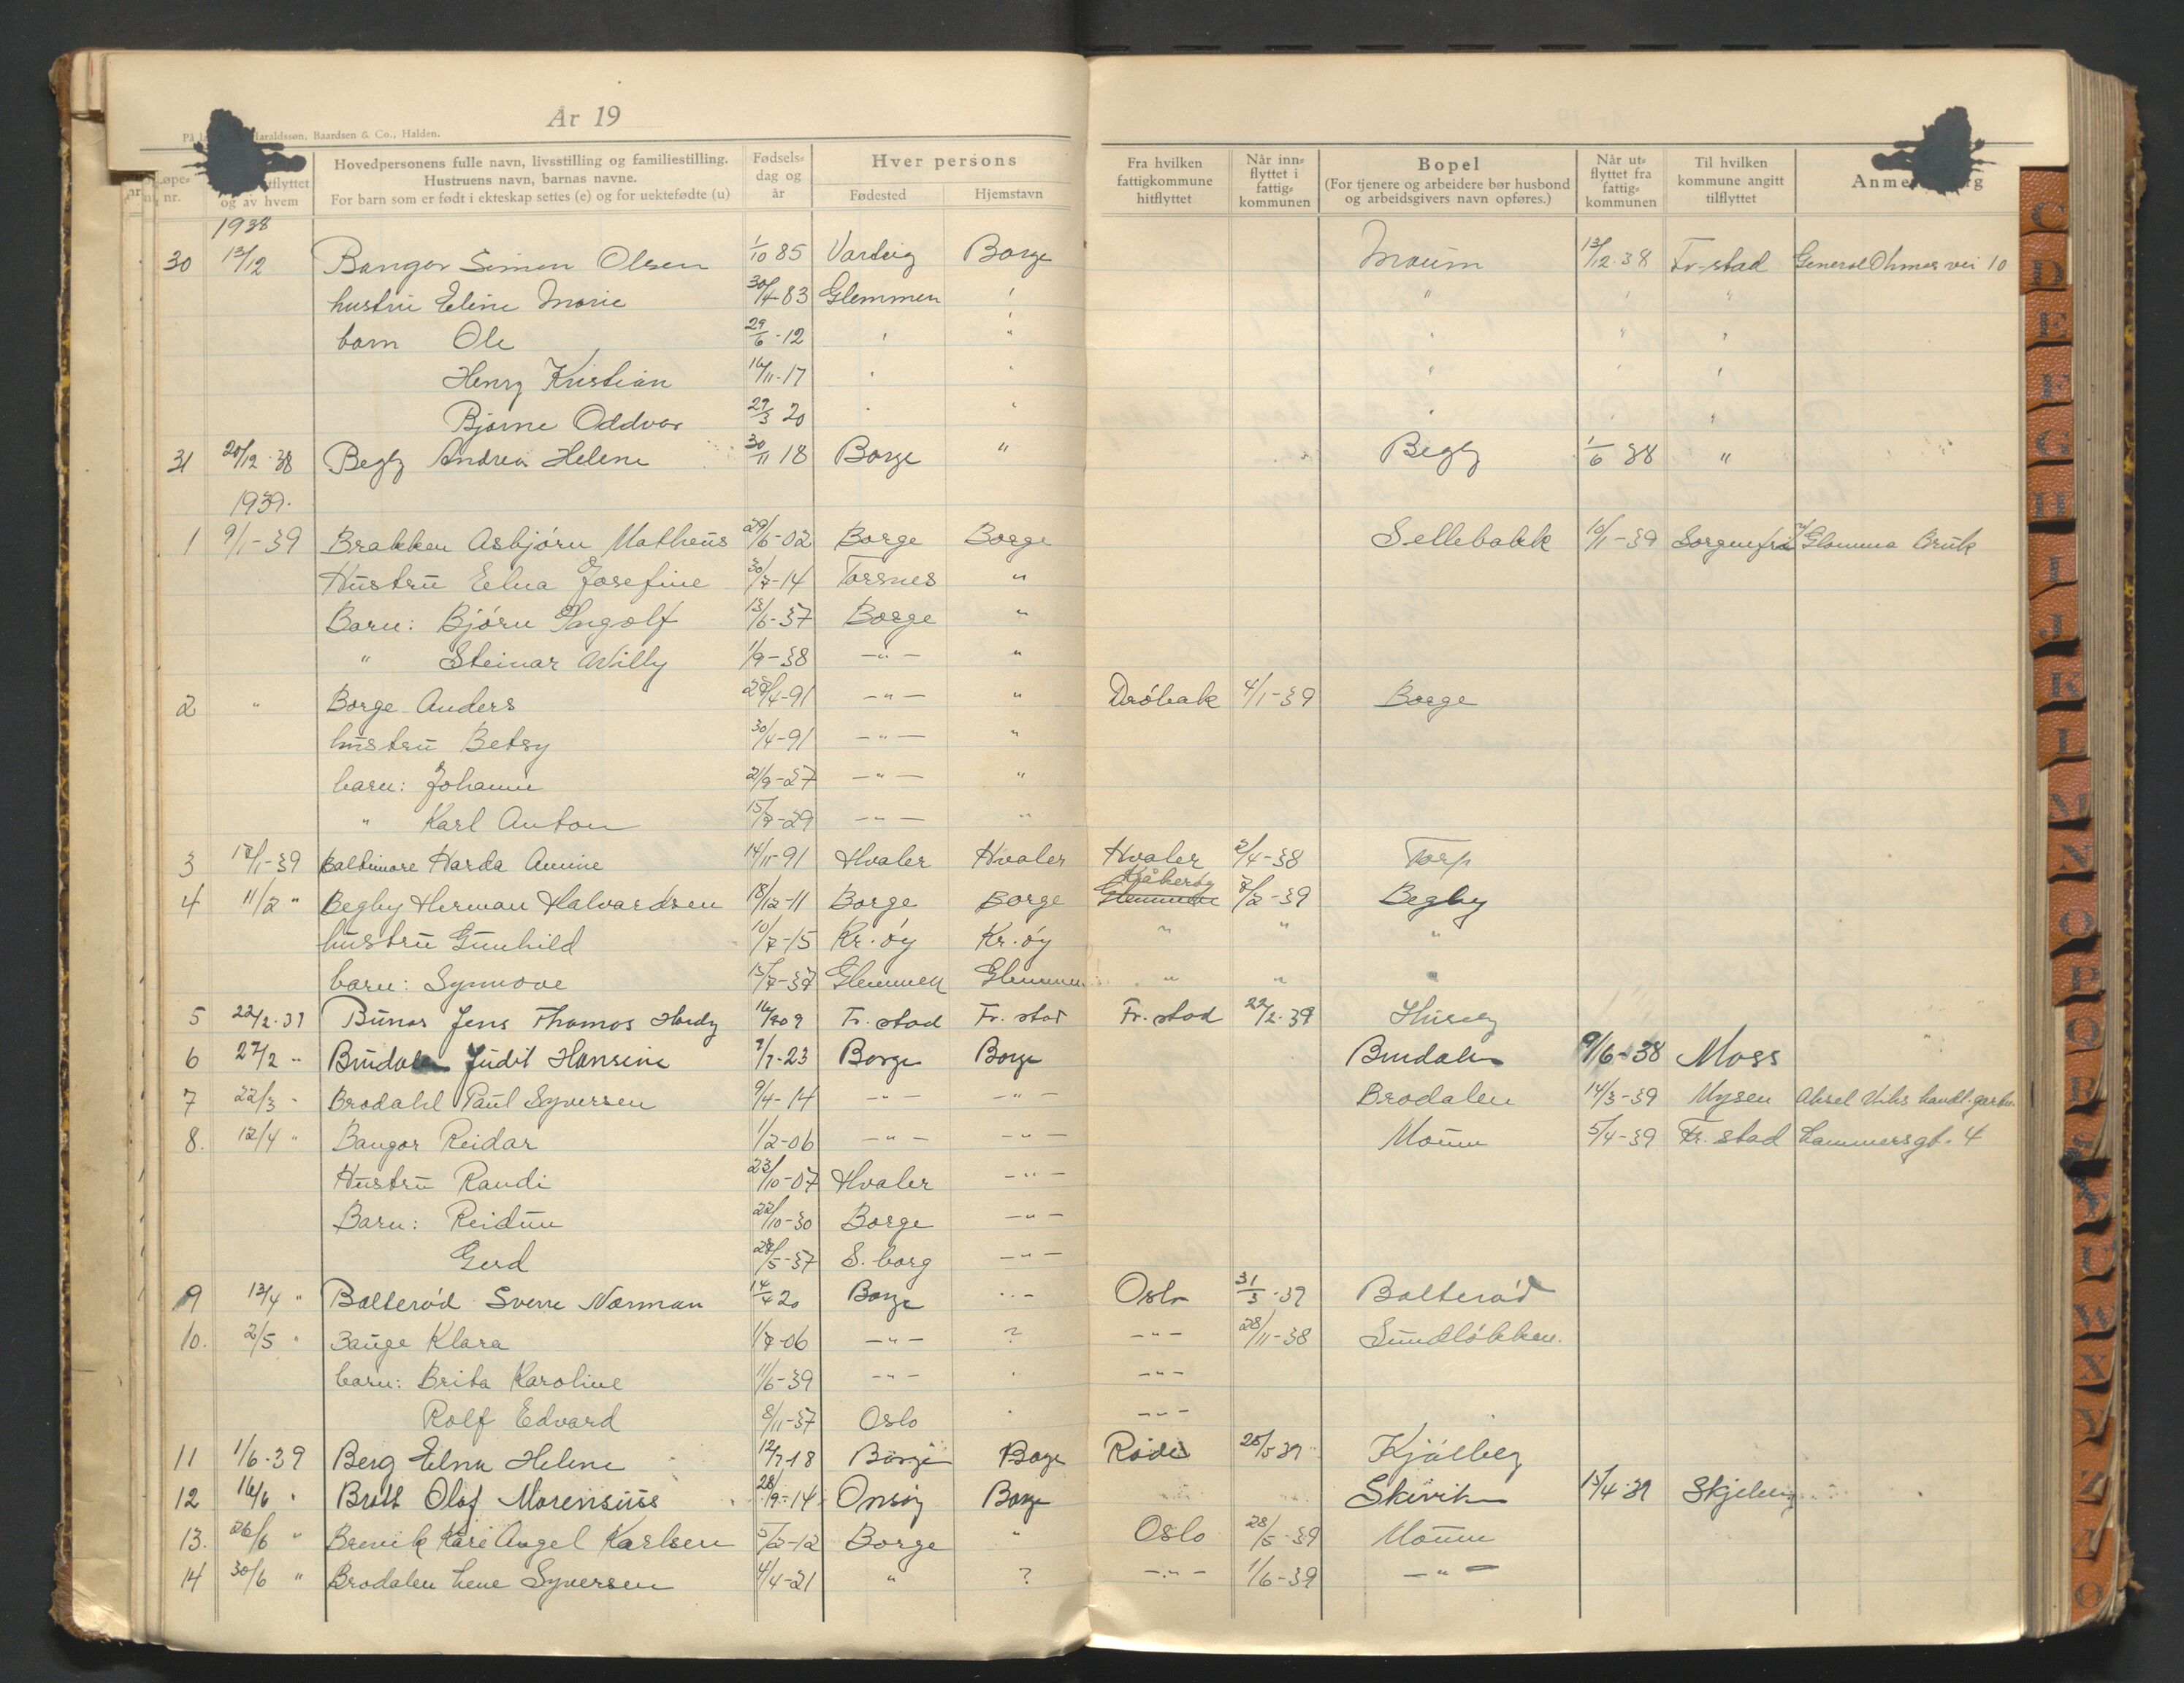 År 19
Haraldssøn, Baardsen & Co., Halden.
Løpe- nr. | flyttet og av hvem | Hovedpersonens fulle navn, livsstilling og familiestilling. Hustruens navn, barnas navne. For barn som er født i ekteskap settes (e) og for uektefødte (u) | Fødsels- dag og år | Hver persons Fødested | Hjemstavn | Fra hvilken fattigkommune hitflyttet | Når inn- flyttet i fattig- kommunen | Bopel (For tjenere og arbeidere bør husbond og arbeidsgivers navn opføres.) | Når ut- flyttet fra fattig- kommunen | Til hvilken kommune angitt tilflyttet | Anme
1938
30 13/12 Bangor Simon Olsen 1/10 85 Varteig Borge Moum 13/12-38 Fr-stad General Ohmes vei 10
hustru Eline Marie 30/4-83 Glemmen " " " "
barn Ole 29/6-12 " " " " "
Henry Kristian 16/11-17 " " " " "
Bjarne Oddvar 29/3 20 " " " " "
31 20/12-38 Begby Andrea Helene 30/11 18 Borge " Begby 1/6 38 "
1939.
1 9/1-39 Brakken Asbjørn Matheus 29/6-02 Borge Borge Sellebakk 10/1-39 Sorgenfri Glomma Bruk
Hustru Elna Josefine 30/7-14 Torsnes "
Barn: Bjørn Ingolf 13/6-37 Borge "
" Steinar Willy 1/9-38 -"- "
2 " Borge Anders 29/4-91 -"- " Drøbak 4/1-39 Borge
hustru Betsy 30/4-91 -"- "
barn: Johanne 21/9-27 -"- "
" Karl Anton 15/7-29 -"- "
3 18/1-39 Baltimore Harda Amine 14/11-91 Hvaler Hvaler Hvaler 2/4-38 Torp
4 11/2 " Begby Herman Halvardsen 18/12-11 Borge Borge Kråkerøy Glemmen 7/2-39 Begby
hustru Gunhild 10/7-15 Kr.øy Kr.øy " " "
barn: Synnøve 15/7-37 Glemmen Glemmen " " "
5 22/2-39 Bunes Jens Thomas Hardy Fr.stad Fr.stad Fr.stad 22/2-39
6 27/2 " Judit Hansine 7/7-23 Borge Borge 9/6-38 Moss
7 22/3 " Brodahl Paul Syversen 9/4-14 -"- -"- Brodalen 14/3-39 Mysen Aksel
8. 12/4 " Bangor Reidar 1/2-06 -"- -"- Moum 5/4-39 Fr.stad Lammersgt. 4
Hustru Randi 23/10-07 Hvaler -"-
Barn: Reidun 22/10-30 Borge -"-
Gerd 28/5-37 S.borg -"-
9 13/4 " Bolterød Sverre Norman 14/4 20 Borge -"- Oslo 31/3-39 Bolterød
10. 2/5 " Bauge Klara 1/7-06 -"- ? -"- 28/11-38 Sundløkken.
barn: Brita Karoline 11/6-39 -"- " -"-
Rolf Edvard 8/11-37 Oslo " -"-
11 1/6-39 Berg Elna Helene 12/7-18 Borge Borge Råde 25/5-39 Kjølberg
12 16/6 " Bratt Olaf 28/9-14 Onsøy Borge Skivik 15/4-39 Skjeberg
13. 26/6 " Brevik Kåre Angel Karlsen 5/2-12 Borge " Oslo 28/5-39 Moum
14 30/6 " Brodalen Lene Syversen 4/4-21 " ? -"- 1/6-39 -"-